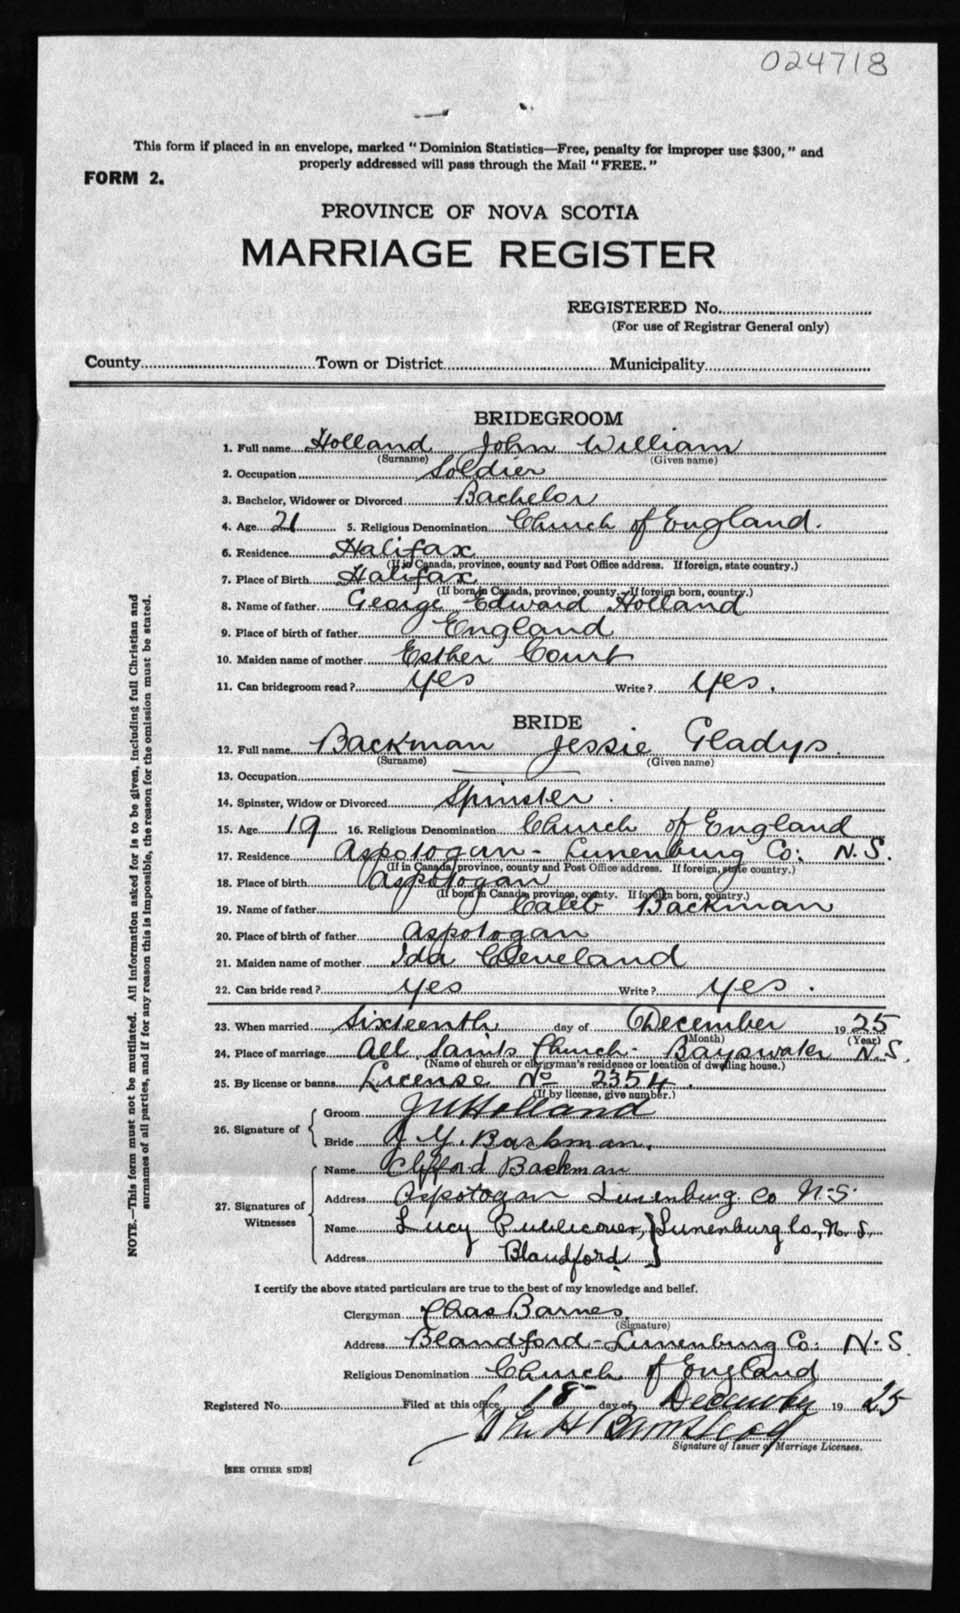 024718
This form if placed in an envelope, marked "Dominion Statistics—Free, penalty for improper use $300," and
properly addressed will pass through the Mail "FREE."
FORM 2.
PROVINCE OF NOVA SCOTIA
MARRIAGE REGISTER
REGISTERED No.
(For use of Registrar General only)
County Town or District Municipality
BRIDEGROOM
1. Full name Holland John William
(Surname) (Given name)
2. Occupation Soldier
3. Bachelor, Widower or Divorced Bachelor
4. Age 21 5. Religious Denomination Church of England.
6. Residence Halifax
(If in Canada, province, county and Post Office address. If foreign, state country.)
7. Place of Birth Halifax
(If born in Canada, province, county. If foreign born, country.)
8. Name of father George Edward Holland
9. Place of birth of father England
10. Maiden name of mother Esther Court
11. Can bridegroom read? yes Write? yes.
BRIDE
12. Full name Backman Jessie Gladys.
(Surname) (Given name)
13. Occupation
14. Spinster, Widow or Divorced Spinster.
15. Age 19 16. Religious Denomination Church of England
17. Residence Aspotogan - Lunenburg Co: N.S.
(If in Canada, province, county and Post Office address. If foreign, state country.)
18. Place of birth Aspotogan
(If born in Canada, province, county. If foreign born, country.)
19. Name of father Caleb Backman
20. Place of birth of father Aspotogan
21. Maiden name of mother Ida Cleveland
22. Can bride read? yes Write? yes.
23. When married Sixteenth day of December 1925
(Month) (Year)
24. Place of marriage All Saints Church - Bayswater N.S.
(Name of church or clergyman's residence or location of dwelling house.)
25. By license or banns License No 2354.
(If by license, give number.)
26. Signature of Groom J W Holland
Bride J. G. Backman.
27. Signatures of Witnesses Name Clifford Backman
Address Aspotogan Lunenburg Co N.S.
Name Lucy Publicover, } Lunenburg Co., N.S.
Address Blandford
I certify the above stated particulars are true to the best of my knowledge and belief.
Clergyman Chas Barnes
(Signature)
Address Blandford - Lunenburg Co: N.S.
Religious Denomination Church of England
Registered No. Filed at this office 18 day of December 1925
Signature of Issuer of Marriage Licenses.
[SEE OTHER SIDE]
NOTE.—This form must not be mutilated. All information asked for is to be given, including full Christian and
surnames of all parties, and if for any reason this is impossible, the reason for the omission must be stated.